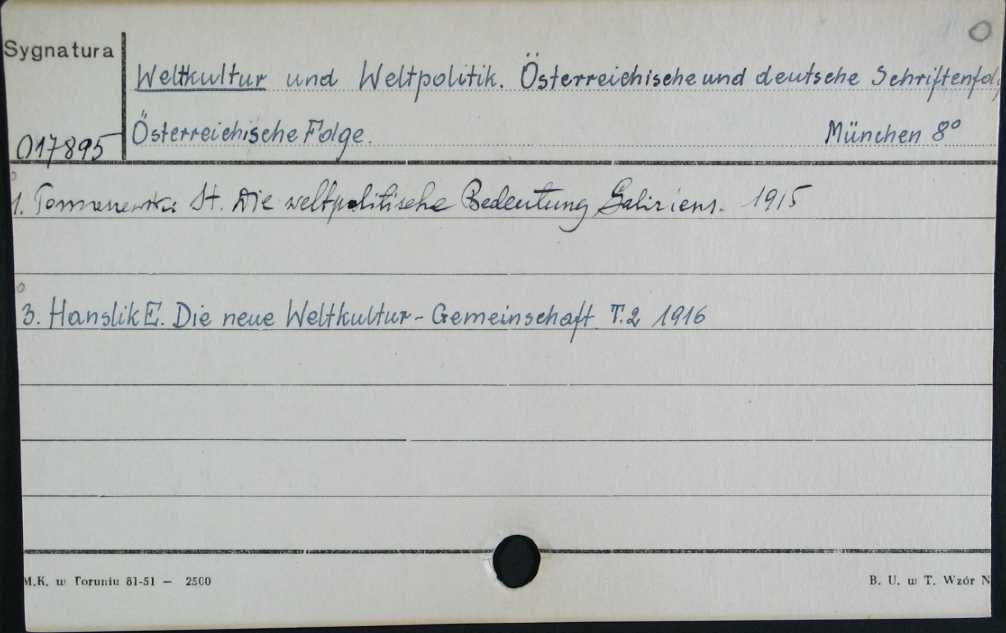 0
Sygnatura
Weltkultur und Weltpolitik. Österreichische und deutsche Schriftenfolg
017895
Österreichische Folge. München 8°
1. St. Die weltpolitische Bedeutung Galiziens. 1915
3. Hanslik E. Die neue Weltkultur-Gemeinschaft T.2 1916
M.K. w Toruniu 81-51 — 2500
B. U. w T. Wzór N